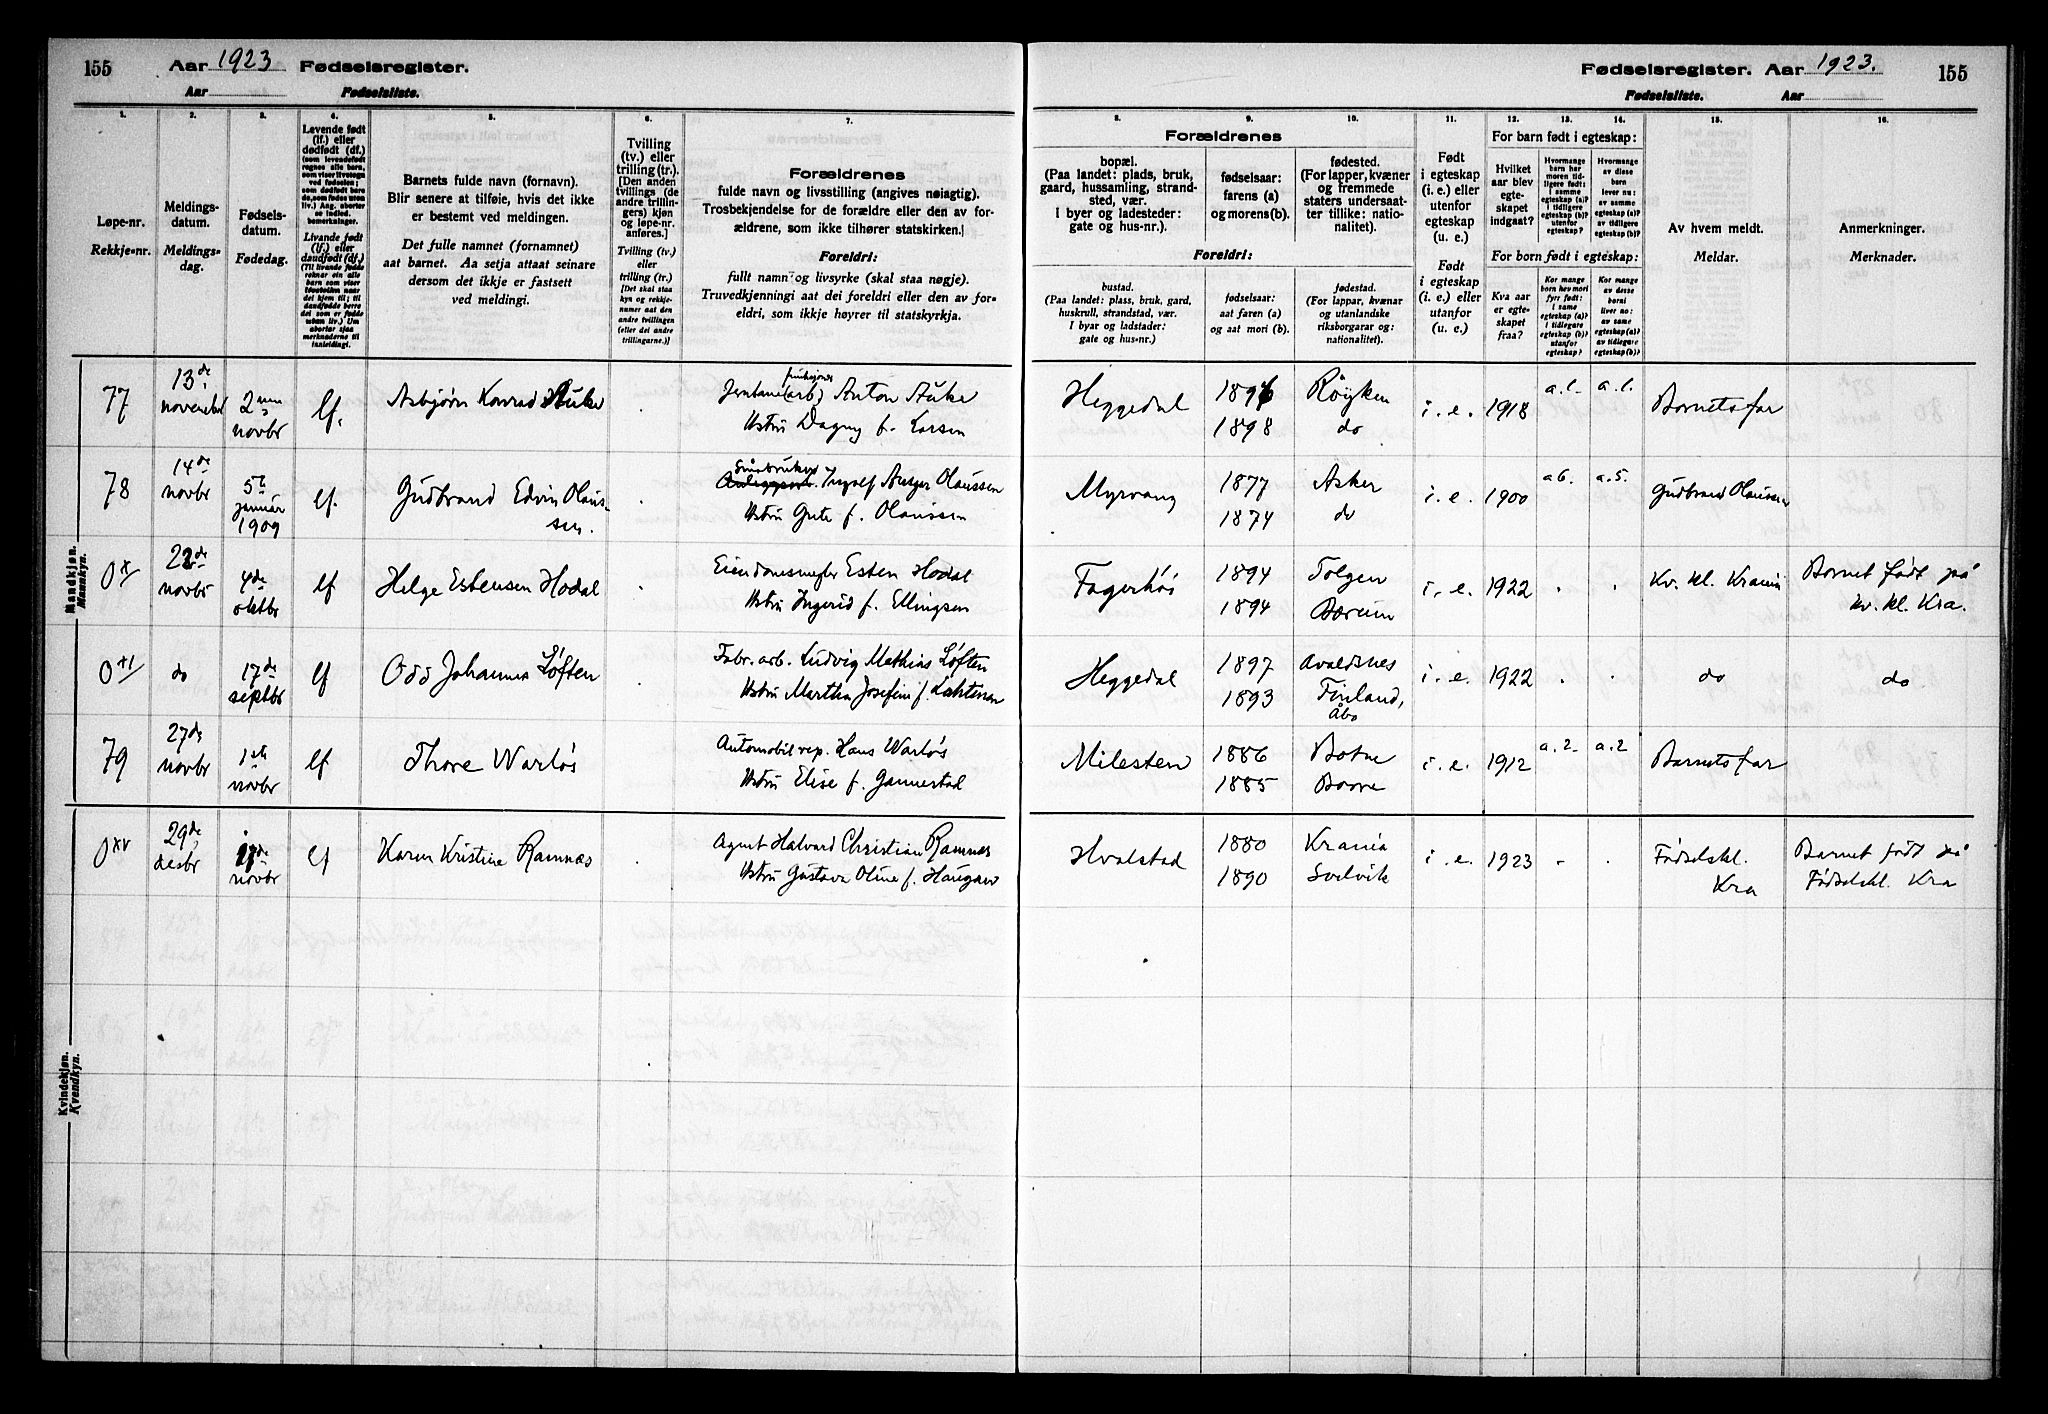 155 Aar 1923 Fødselsregister.
Aar Fødselsliste.
Fødselsregister. Aar 1923. 155
Fødselsliste. Aar
1. 2. 3. 4. 5. 6. 7.
Løpe-nr.
Rekkje-nr.
Meldings-
datum.
Meldings-
dag.
Fødsels-
datum.
Fødedag.
Levende født
(lf.) eller
dødfødt (df.)
Livande født
(lf.) eller
daudfødt (df.)
Barnets fulde navn (fornavn).
Blir senere at tilføie, hvis det ikke
er bestemt ved meldingen.
Det fulle namnet (fornamnet)
aat barnet. Aa setja attaat seinare
dersom det ikkje er fastsett
ved meldingi.
Tvilling
(tv.) eller
trilling (tr.).
[Den anden
tvillings (de
andre trillin-
gers) kjøn
og løpe-nr.
anføres.]
Tvilling (tv.)
eller
trilling (tr.)
[Det skal staa
kyn og rekkje-
numer aat den
andre tvillingen
(eller dei andre
trillingarne.)]
Forældrenes
fulde navn og livsstilling (angives nøiagtig).
Trosbekjendelse for de forældre eller den av for-
ældrene, som ikke tilhører statskirken.]
Foreldri:
fullt namn og livsyrke (skal staa nøgje).
Truvedkjenningi aat dei foreldri eller den av for-
eldri, som ikkje høyrer til statskyrkja.
8. 9. 10. 11. 12. 13. 14. 15. 16.
Forældrenes
bopæl.
(Paa landet: plads, bruk,
gaard, hussamling, strand-
sted, vær.
I byer og ladesteder:
gate og hus-nr.).
fødselsaar:
farens (a)
og morens (b).
fødested.
(For lapper, kvæner
og fremmede
staters undersaat-
ter tillike: natio-
nalitet).
Foreldri:
bustad.
(Paa landet: plass, bruk, gard,
huskrull, strandstad, vær.
I byar og ladstader:
gate og hus-nr.)
fødselsaar:
aat faren (a)
og aat mori (b).
fødestad.
(For lappar, kvænar
og utanlandske
riksborgarar og:
nationalitet).
Født
i egteskap
(i. e.) eller
utenfor
egteskap
(u. e.)
Født
i egteskap
(i. e.) eller
utanfor
(u. e.)
For barn født i egteskap:
Hvilket
aar blev
egte-
skapet
indgaat?
Hvormange
barn har
moren tid-
ligere født:
i samme
egteskap (a)?
i tidligere
egteskap (b)?
utenfor
egteskap?
Hvormange
av disse
barn
lever nu:
av samme
egteskap (a)?
av tidligere
egteskap (b)?
For born født i egteskap:
Kva aar
er egte-
skapet
fraa?
Kor mange
born hev mori
fyrr født:
i same
egteskap (a)?
i tidlegare
egteskap (b)?
utanfor
egteskap?
Kor mange
av desse
borni
liver no:
av same
egteskap (a)?
av tidlegare
egteskap (b)?
Av hvem meldt.
Meldar.
Anmerkninger.
Merknader.
Mandkjøn.
Mannkyn.
77 13de novembr 2nen novbr lf. Asbjørn Konrad Auke
Anton Auke
Hstru Dagny f. Larsen
Heggedal 1896 Røyken i. e. 1918 Barnets far
1898 do
78 14de novbr 5te januar 1909 lf. Gudbrand Edvin Olaus-
sen.
Småbruker Ingolf Olaussen
Hstru Gute f. Olaussen
Myrvang 1877 Asker i. e. 1900 a 6. a. 5. Gudbrand Olaussen
1874 do
0x 22de novbr 4de oktbr lf Helge Estensen Hodal
Eiendomsmegler Esten Hodal
Hstru Ingerid f. Ellingsen
Fagerhøi 1894 Tolgen i. e. 1922 . . Kv. kl. Krania Barnet født på
1894 Bærum kv. kl. Kra.
do 17de septbr lf Odd Johannes Løften
Fabr. arb. Ludvig Mathias Løften
Hstru Martha Josefine f. Lahtenen
Heggedal 1897 Avaldsnes i. e. 1922 . . do do
1893 Finland,
Åbo
79 27de novbr 1ste novbr lf Thore Warløs
Automobilrep. Hans Warløs
Hstru Elise f. Gannestad
Milesten 1886 Botne i. e. 1912 a. 2 a. 2 Barnets far
1885 Borre
Kvindekjøn.
Kvendkyn.
0xv 29de desbr 17de novbr lf Karen Kristine Ramnæs .
Agent Halvard Christian Ramnæs
Hstru Gustava Oline f. Haugan
Hvalstad 1880 Krania i. e. 1923 . . Fødselskl. Barnet født på
1890 Svelvik Kra Fødselskl. Kra